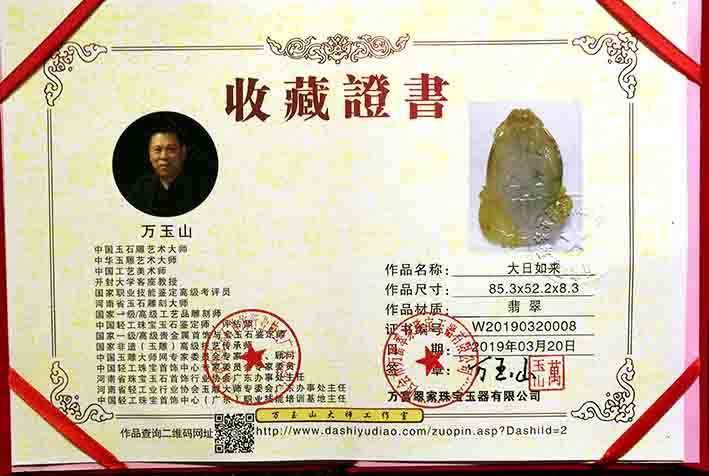 收藏證書
万玉山
中国玉石雕艺术大师
中华玉雕艺术大师
中国工艺美术师
开封大学客座教授
国家职业技能鉴定高级考评员
河南省玉石雕刻大师
国家一级/高级工艺品雕刻师
中国轻工珠宝玉石鉴定师、评估师
国家一级/高级贵金属首饰与宝玉石鉴定师
国家非遗（玉雕）高级技艺传承师
中国玉雕大师网专家委员会专家、顾问
中国轻工珠宝首饰中心专家委员会专家委员
河南省珠宝玉石首饰行业协会广东办事处主任
河南省轻工业行业协会玉雕大师专委会广东办事处主任
中国轻工珠宝首饰中心（广东）职业技能培训基地主任
作品名称：大日如来
作品尺寸：85.3x52.2x8.3
作品材质：翡翠
证书编号：W20190320008
日期：2019年03月20日
签章：万玉山
萬玉山
万宫翠家珠宝玉器有限公司
万玉山大师工作室
作品查询二维码网址
http://www.dashiyudiao.com/zuopin.asp?DashiId=2